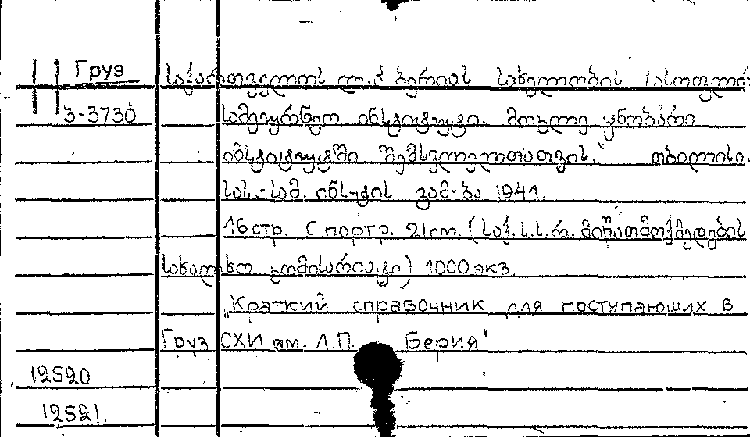 Груз
საქართველოს ლ. პ ბერიას სახელობის სასოფლო
3-3730 სამეურნეო ინსტიტუტი. მოკლე ცნობარი
ინსტიტუტში შემსვლელთათვის." თბილისი.
სას.-სამ. ინსტ-ის გამ-ბა 1941.
16 стр. с портр. 21 cm. (საქ. ს. ს. რ. მიწათმოქმედების
სახალხო კომისარიატი) 1000 экз.
„Краткий справочник для поступающих в
Груз СХИ им. Л.П. Берия"
12520
12521.